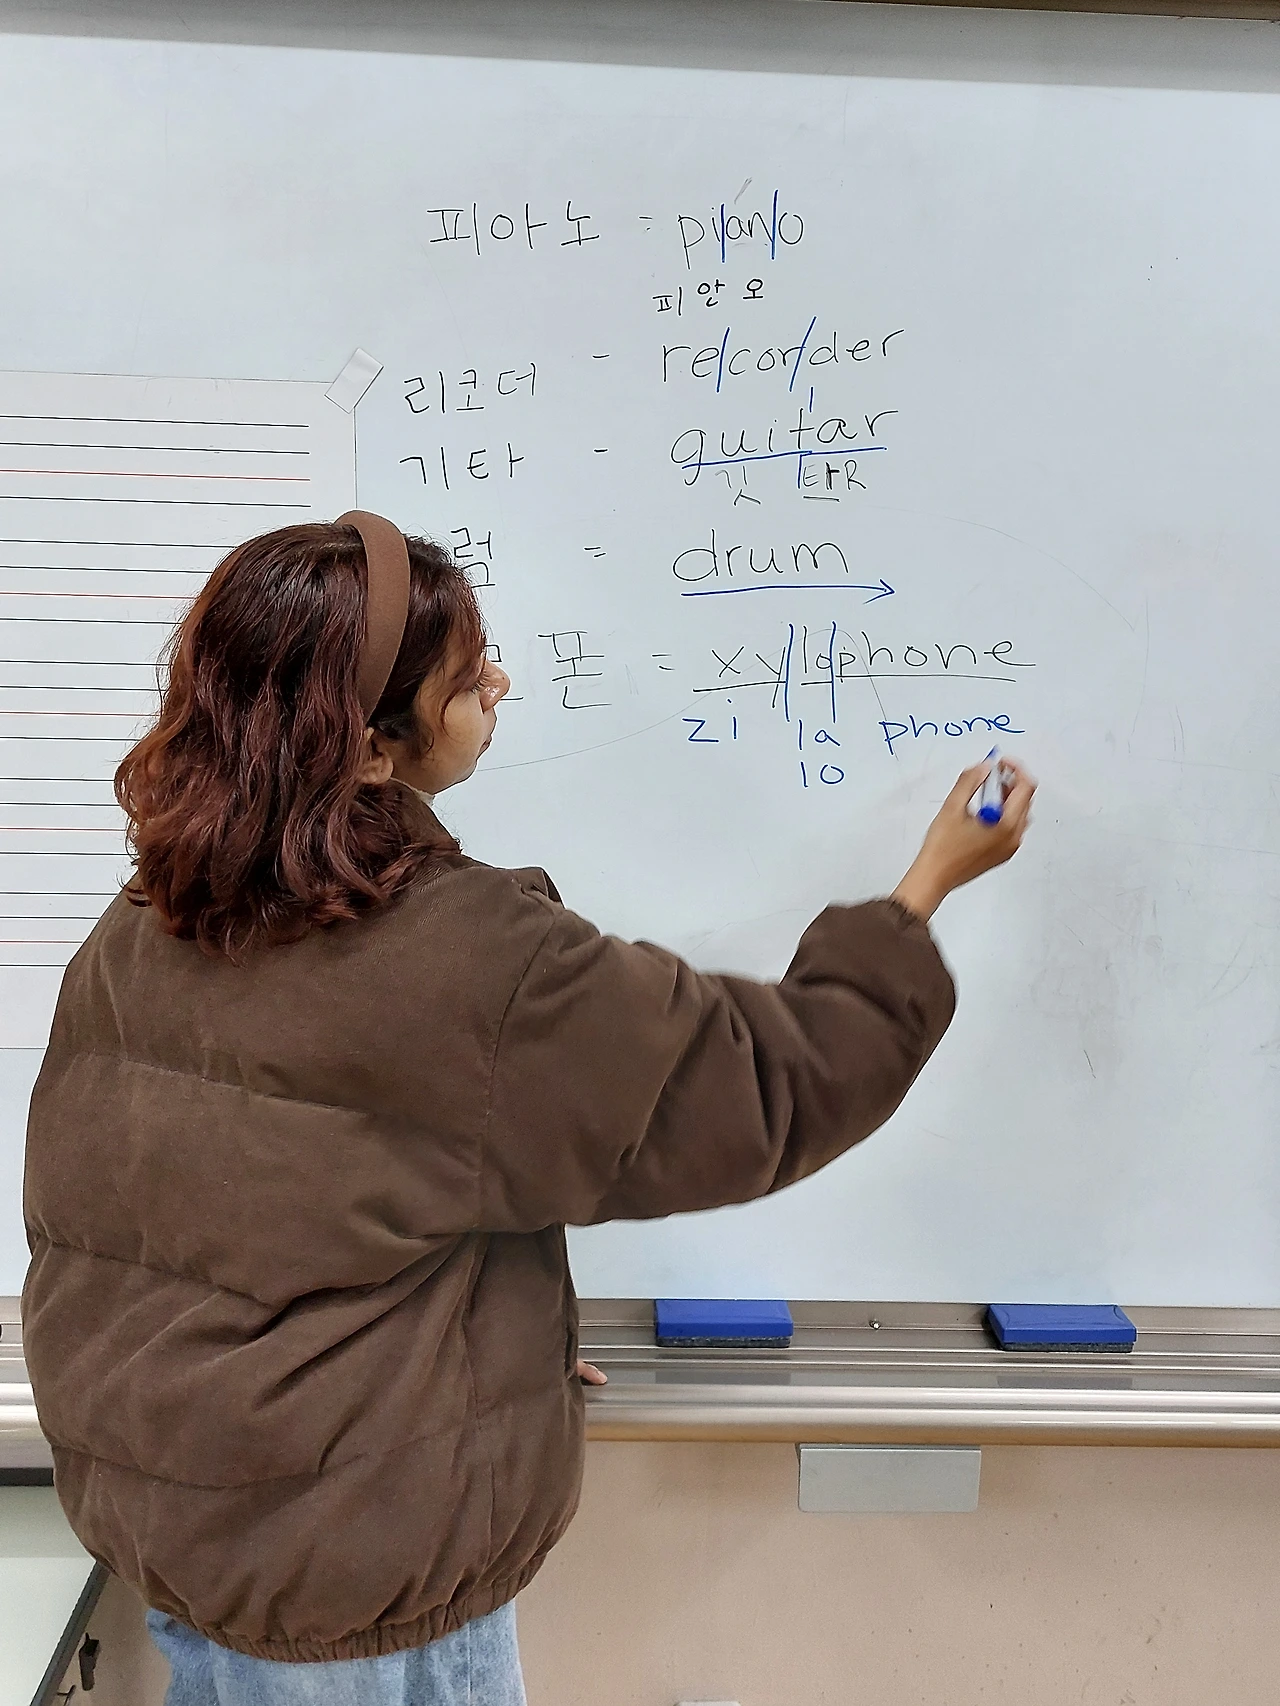 피아노 = pi/an/o
피 안 오
리코더 - re/cor/der
기타 - guitar
깃 타R
럼 = drum
폰 = xy/lo/phone
zi la phone
lo